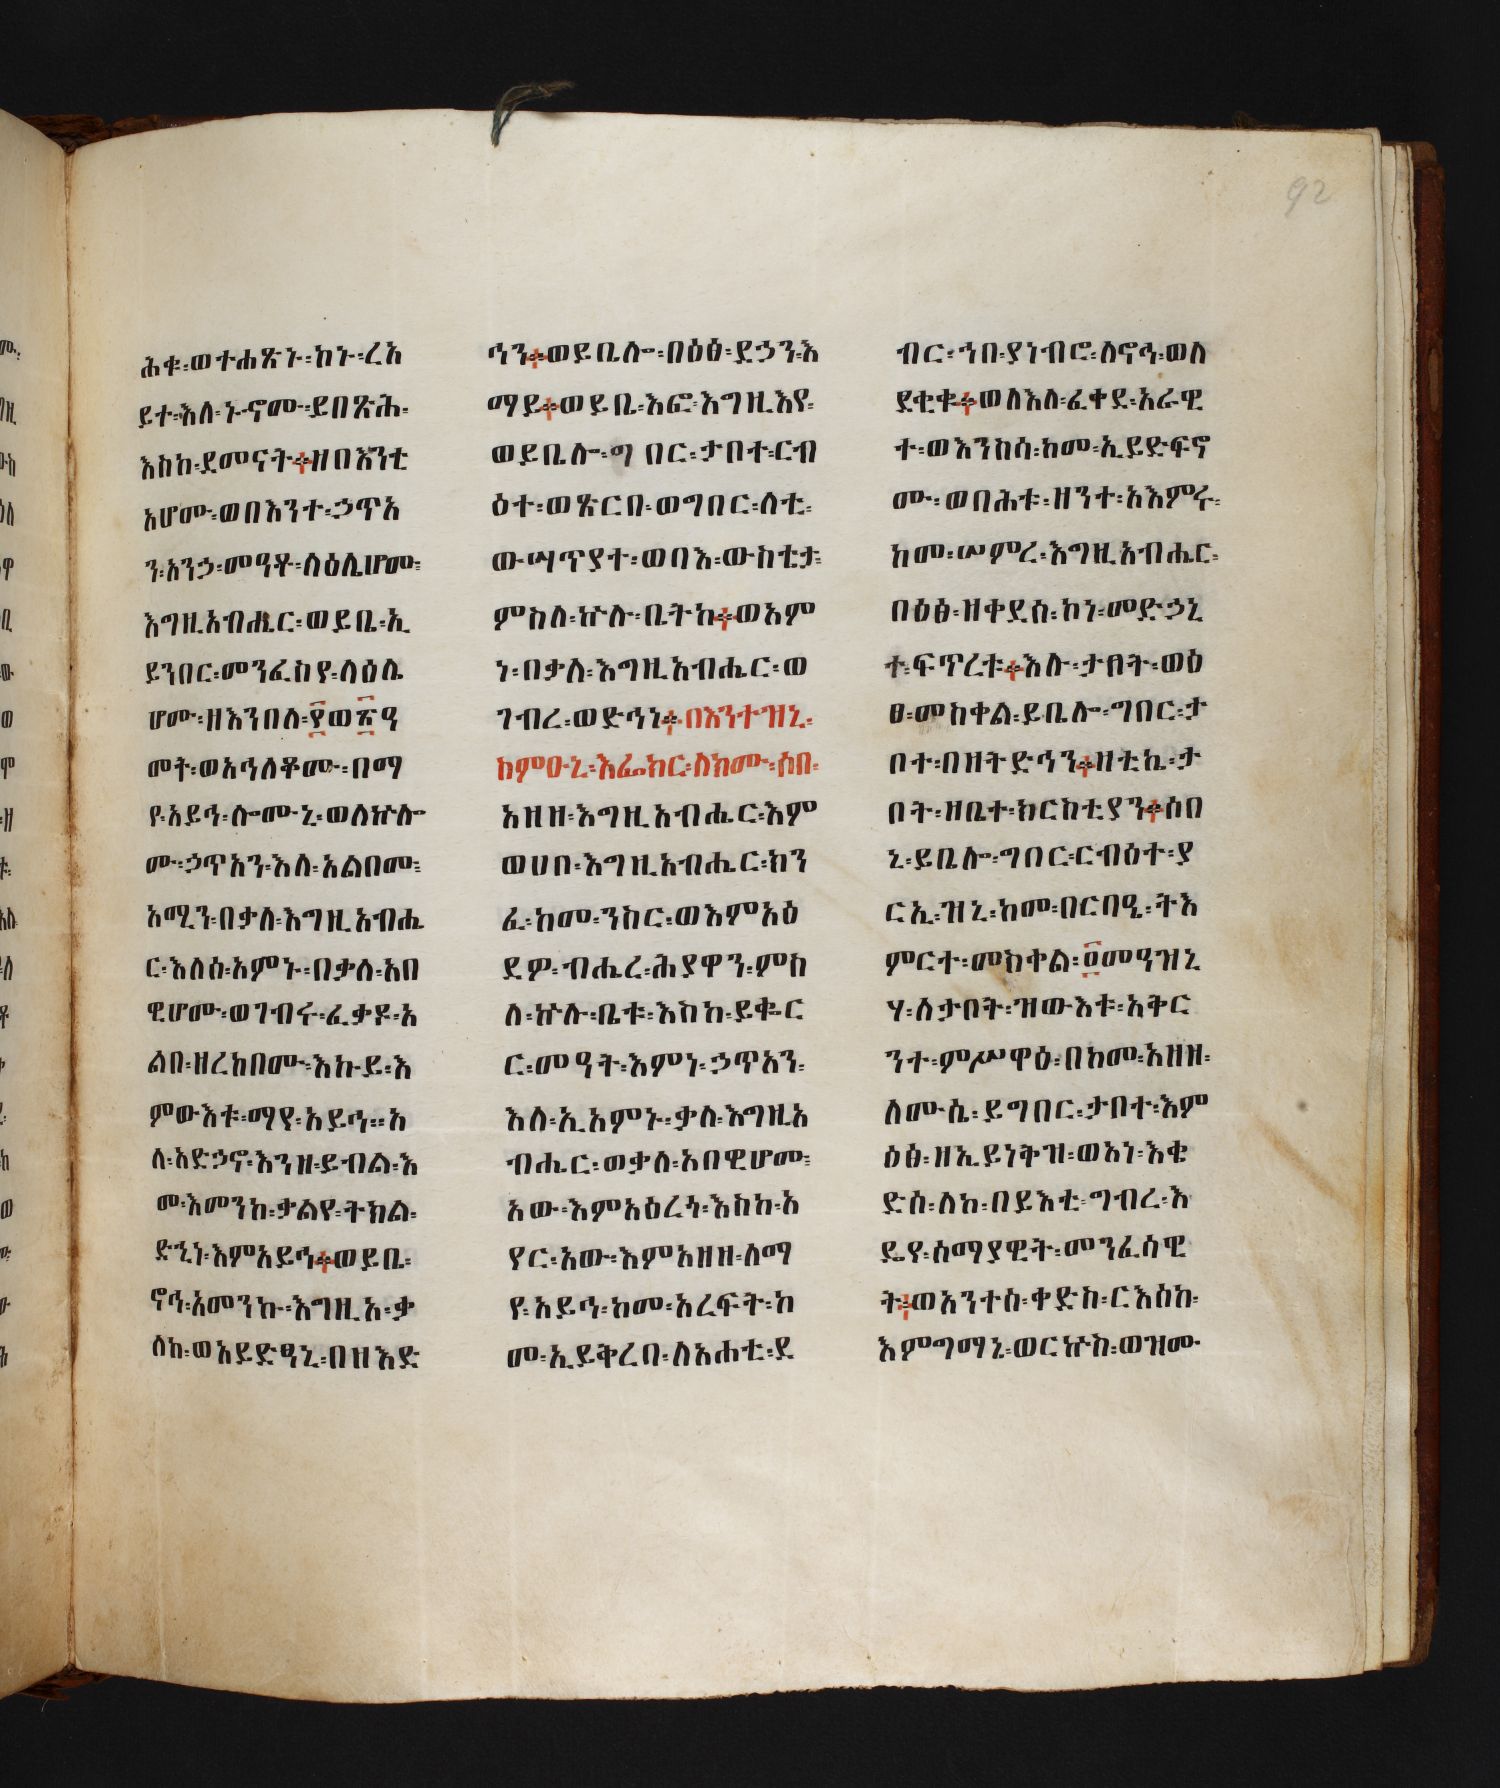 92
ሕቁ፡ወተሐጽኑ፡ከኑ፡ረአ
ይተ፡እለ፡ኑኖሙ፡ይበጽሕ፡
እስከ፡ደመናት።ዘበእንቲ
አሆሙ፡ወበእንተ፡ኃጥአ
ን፡አንኃ፡መዓቶ፡ለዕሌሆሙ፡
እግዚአብሔር፡ወይቤ፡ኢ
ይንበር፡መንፈስየ፡ለዕሌ
ሆሙ፡ዘእንበለ፡፻ወ፳ዓ
መት፡ወአኅለቆሙ፡በማ
የ፡አይኅ፡ሎሙኒ፡ወለኵሎ
ሙ፡ኃጥአን፡እለ፡አልበሙ፡
አሚን፡በቃለ፡እግዚአብሔ
ር፡እለሰ፡አምኑ፡በቃለ፡አበ
ዊሆሙ፡ወገብሩ፡ፈቃዶ፡አ
ልበ፡ዘረከበሙ፡እኩይ፡እ
ምውእቱ፡ማየ፡አይኅ።አ
ላ፡አድኃኖ፡እንዘ፡ይብል፡እ
መ፡አመንከ፡ቃልየ፡ትክል፡
ድኂነ፡እምአይኅ።ወይቤ፡
ኖኅ፡አመንኩ፡እግዚአ፡ቃ
ለከ፡ወአይድዓኒ፡በዘእድ
ኅን።ወይቤሎ፡በዕፅ፡ይኃን፡እ
ማይ።ወይቤ፡እፎ፡እግዚእየ፡
ወይቤሎ፡ግበር፡ታቦተ፡ርብ
ዕተ፡ወጽርበ፡ወግበር፡ለቲ፡
ውሣጥያተ፡ወባእ፡ውስቴታ፡
ምስለ፡ኵሉ፡ቤትከ።ወአም
ነ፡በቃለ፡እግዚአብሔር፡ወ
ገብረ፡ወድኅነ።በእንተዝኒ፡
ከምዑኒ፡እፌክር፡ለክሙ፡ሰበ፡
አዘዘ፡እግዚአብሔር፡እም
ወሀቦ፡እግዚአብሔር፡ክን
ፈ፡ከመ፡ንስር፡ወእምአዕ
ደዎ፡ብሔረ፡ሕያዋን፡ምስ
ለ፡ኵሉ፡ቤቱ፡እስከ፡ይቈር
ር፡መዓት፡እምነ፡ኃጥአን፡
እለ፡ኢአምኑ፡ቃለ፡እግዚአ
ብሔር፡ወቃለ፡አበዊሆሙ፡
አው፡እምአዕረጎ፡እስከ፡አ
የር፡አው፡እምአዘዘ፡ለማ
የ፡አይኅ፡ከመ፡አረፍት፡ከ
መ፡ኢይቅረብ፡ለአሐቲ፡ደ
ብር፡ኀበ፡ያነብሮ፡ለኖኅ፡ወለ
ደቂቁ።ወለእለ፡ፈቀደ፡አራዊ
ተ፡ወእንስሳ፡ከመ፡ኢይድፍኖ
ሙ፡ወበሕቱ፡ዘንተ፡አእምሩ፡
ከመ፡ሠምረ፡እግዚአብሔር፡
በዕፅ፡ዘቀደሰ፡ኮነ፡መድኃኒ
ተ፡ፍጥረቱ።እሉ፡ታቦት፡ወዕ
ፀ፡መስቀል፡ይቤሎ፡ግበር፡ታ
ቦተ፡በዘትድኅን።ዘቲኬ፡ታ
ቦት፡ዘቤተ፡ክርስቲያን።ሰበ
ኒ፡ይቤሎ፡ግበር፡ርብዕተ፡ያ
ርኢ፡ዝኒ፡ከመ፡በርባዒ፡ትእ
ምርተ፡መስቀል፡፬መዓዝኒ
ሃ፡ለታቦት፡ዝውእቱ፡አቅር
ንተ፡ምሥዋዕ፡በከመ፡አዘዘ፡
ለሙሴ፡ይግበር፡ታቦተ፡እም
ዕፅ፡ዘኢይነቅዝ፡ወአነ፡እቄ
ድሰ፡ለከ፡በይእቲ፡ግብረ፡እ
ዴየ፡ሰማያዊት፡መንፈሳዊ
ት።ወአንተሰ፡ቀድስ፡ርእስከ፡
እምግማኔ፡ወርኵስ፡ወዝሙ